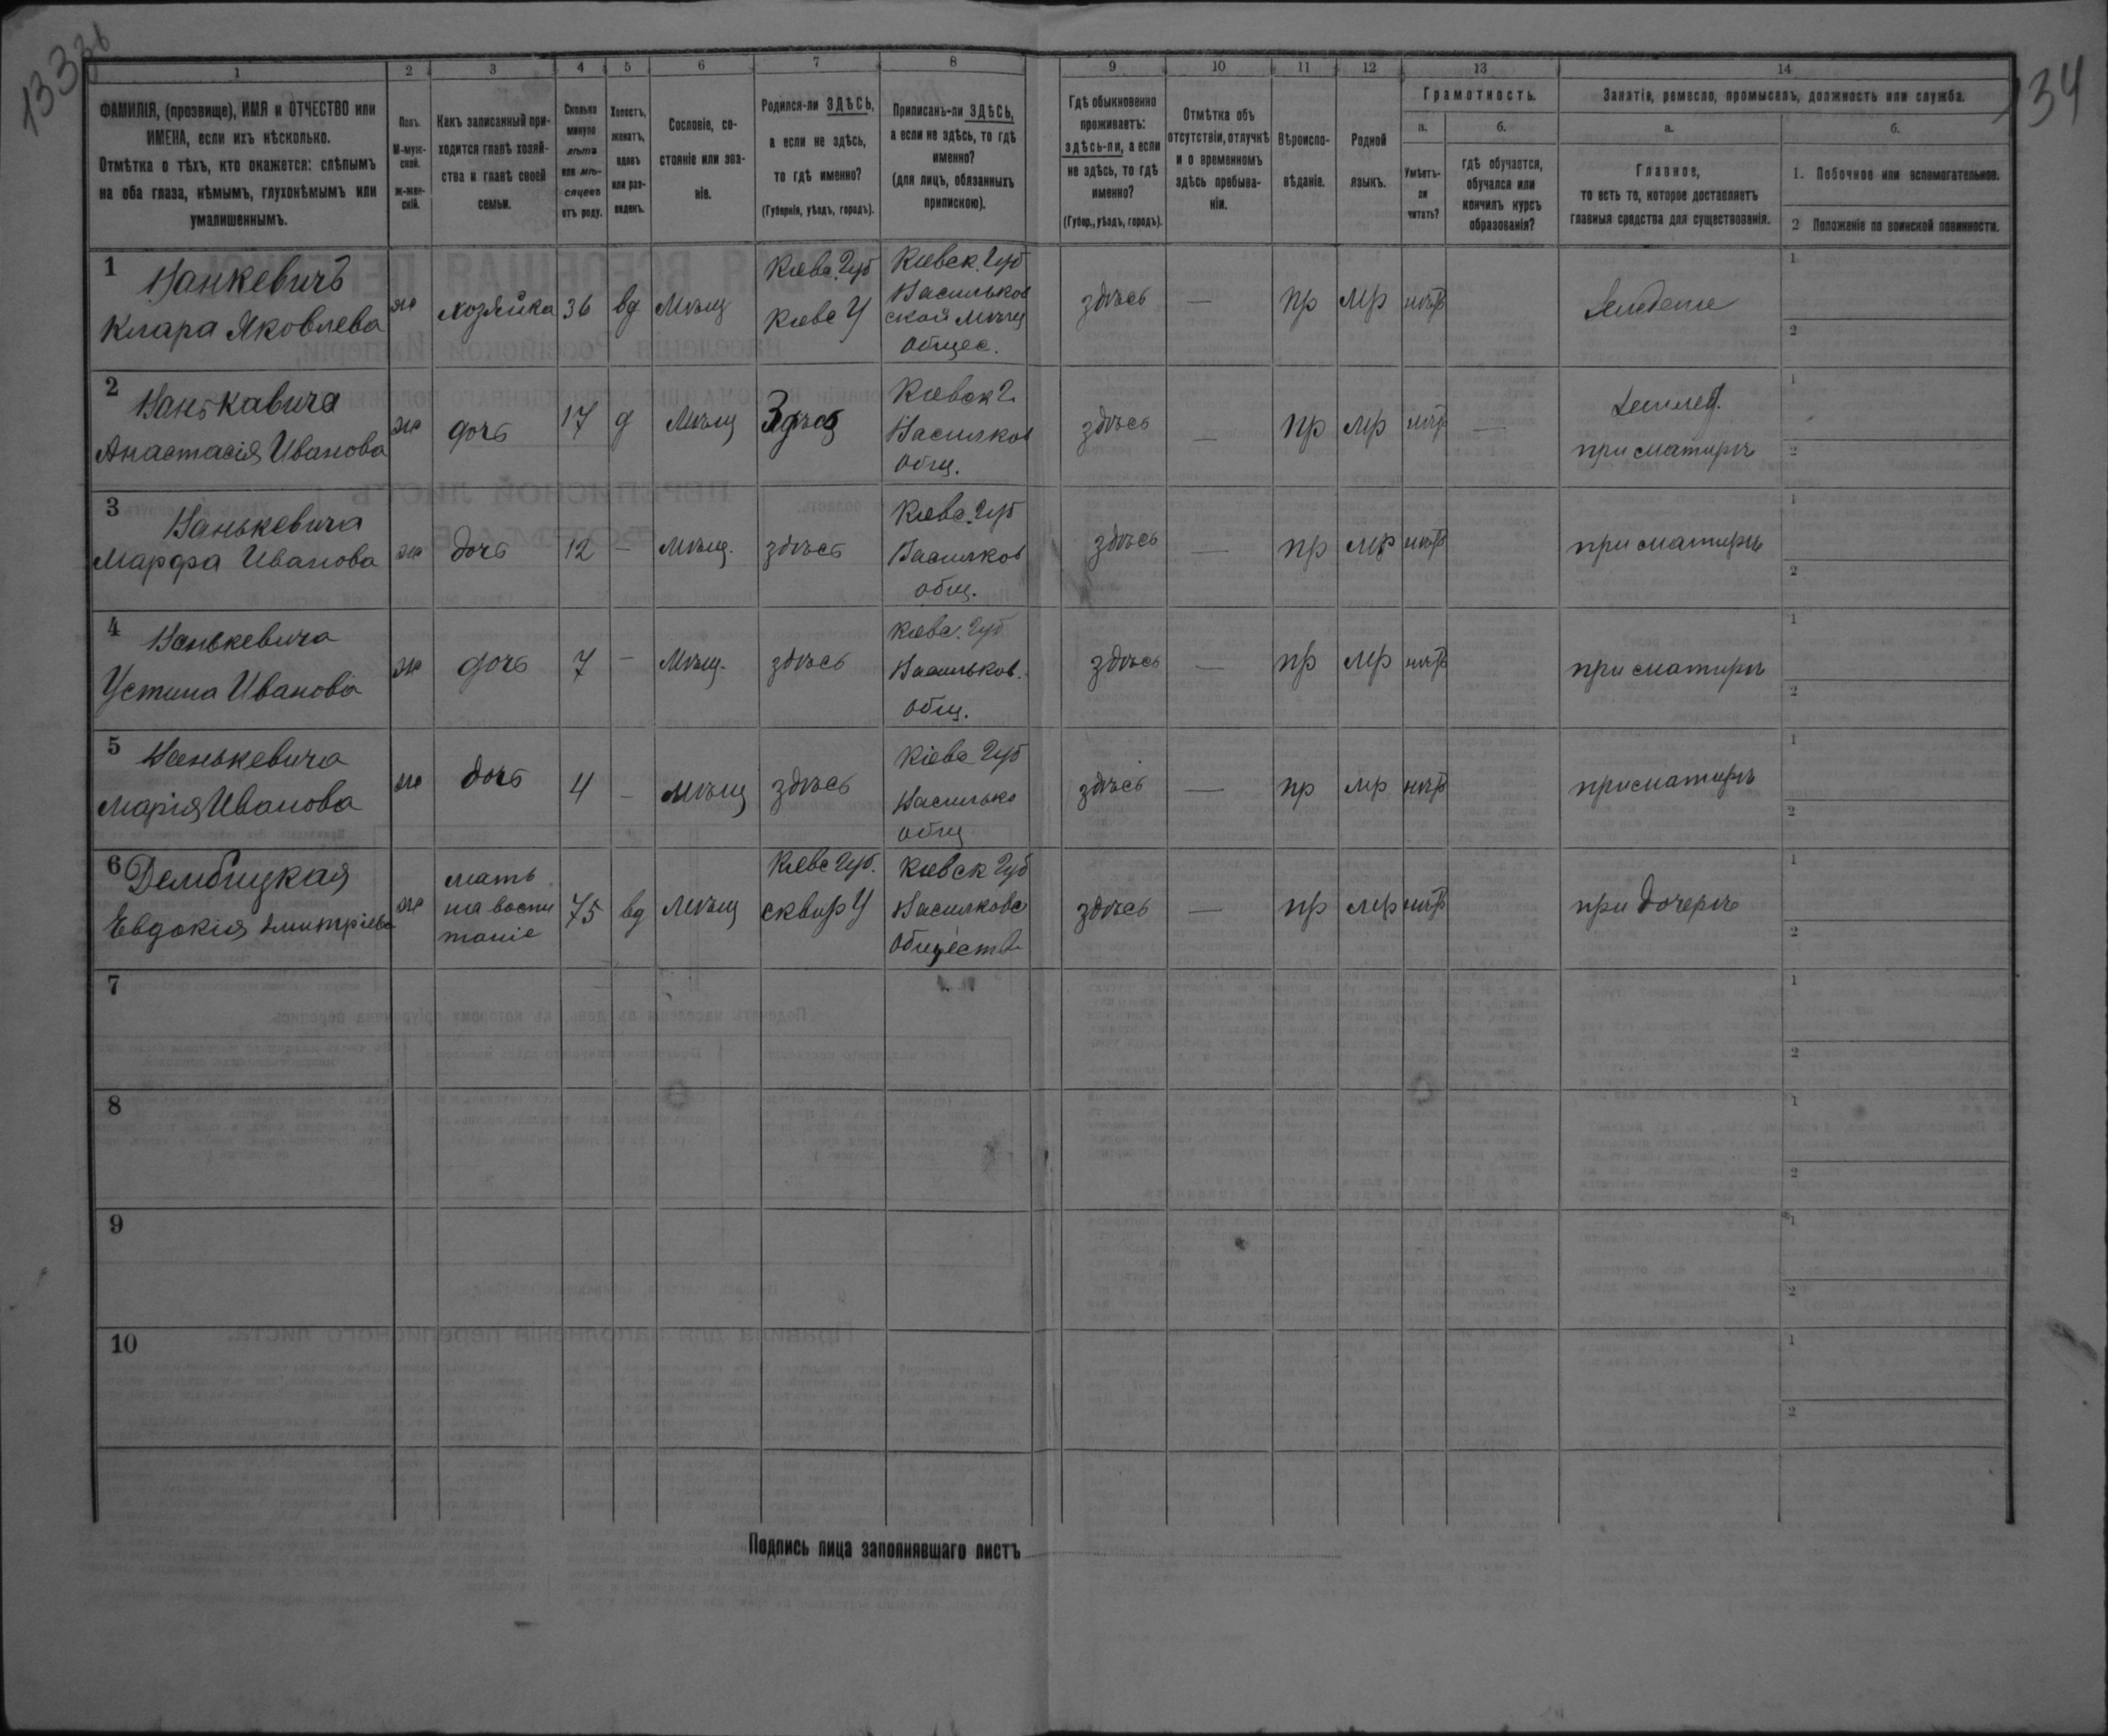 133 об
134
1 2 3 4 5 6 7 8 9 10 11 12 13 14
ФАМИЛІЯ, (прозвище), ИМЯ и ОТЧЕСТВО или
ИМЕНА, если ихъ нѣсколько.
Отмѣтка о тѣхъ, кто окажется: слѣпымъ
на оба глаза, нѣмымъ, глухонѣмымъ или
умалишеннымъ.
Полъ.
М-муж-
ской.
ж-жен-
скій.
Какъ записанный при-
ходится главѣ хозяй-
ства и главѣ своей
семьи.
Сколько
минуло
лѣтъ
или мѣ-
сяцевъ
отъ роду.
Холостъ,
женатъ,
вдовъ
или раз-
веденъ.
Сословіе, со-
стояніе или зва-
ніе.
Родился-ли ЗДѢСЬ,
а если не здѣсь,
то гдѣ именно?
(Губернія, уѣздъ, городъ).
Приписанъ-ли ЗДѢСЬ,
а если не здѣсь, то гдѣ
именно?
(для лицъ, обязанныхъ
припискою).
Гдѣ обыкновенно
проживаетъ:
здѣсь-ли, а если
не здѣсь, то гдѣ
именно?
(Губер., уѣздъ, городъ).
Отмѣтка объ
отсутствіи, отлучкѣ
и о временномъ
здѣсь пребыва-
ніи.
Вѣроиспо-
вѣданіе.
Родной
языкъ.
Грамотность.
а.
Умѣетъ-
ли
читать?
б.
гдѣ обучается,
обучался или
кончилъ курсъ
образованія?
Занятіе, ремесло, промыселъ, должность или служба.
а.
Главное,
то есть то, которое доставляетъ
главныя средства для существованія.
б.
1. Побочное или вспомогательное.
2 Положеніе по воинской повинности.
1 Нанкевичъ
Клара Яковлева
ж
хозяйка
36
вд
Мѣщ
Кіевс. Губ
Кіевс У
Кіевск. Губ
Васильков
ской Мѣщ
общес.
здѣсь
—
пр
мр
нѣтъ
1
2
2 Нанькавича
Анастасія Иванова
ж
дочь
17
д
Мѣщ
Здѣсь
Кіевск г.
Василков
общ.
здѣсь
—
пр
мр
нѣтъ
—
при матирѣ
1
2
3 Нанькевича
Марфа Иванова
ж
дочь
12
—
мѣщ.
здѣсь
Кіевс. Губ
Василков
общ.
здѣсь
—
пр
мр
нѣтъ
при матирѣ
1
2
4 Нанькевича
Устина Иванова
ж
дочь
7
—
Мѣщ.
здѣсь
Кіевс. Губ
Васильков.
общ.
здѣсь
—
пр
мр
нѣтъ
при матирѣ
1
2
5 Нанькевича
Марія Иванова
ж
дочь
4
—
мѣщ
здѣсь
Кіевс Губ
Василько
общ
здѣсь
—
пр
мр
нѣтъ
при матирѣ
1
2
6 Дембицкая
Евдокія Дмитріева
ж
мать
на воспи
таніе
75
вд
Мѣщ
Кіевс Губ.
сквир У
Кіевск Губ
Василковс
Обществ
здѣсь
—
пр
мр
нѣтъ
при дочерѣ
1
2
7
1
2
8
1
2
9
1
2
10
1
2
Подпись лица заполнявшаго листъ